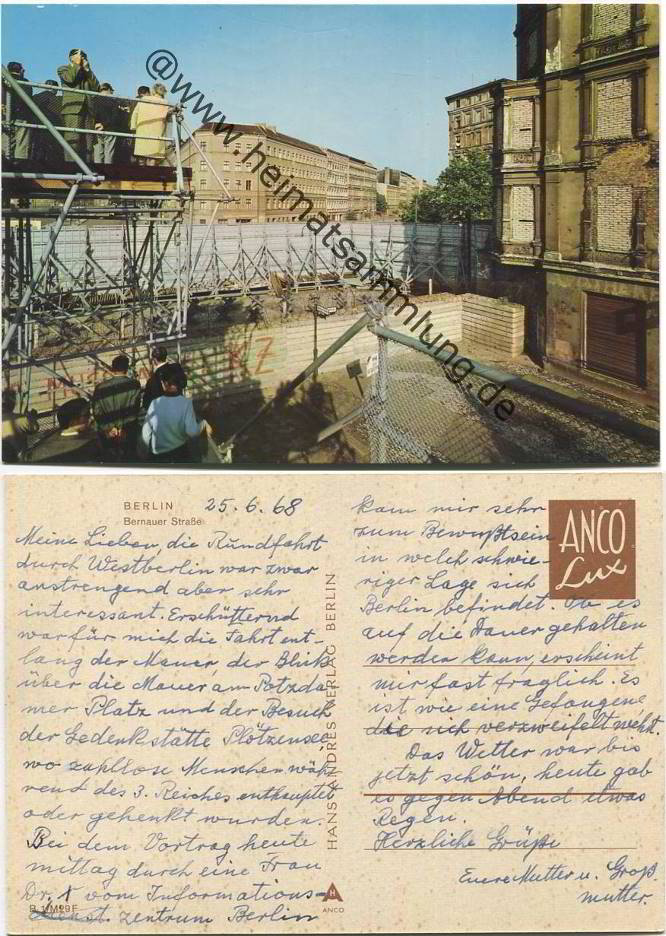 @www.heimatsammlung.de
KZ
BERLIN
Bernauer Straße
25. 6. 68
Meine Lieben, die Rundfahrt
durch Westberlin war zwar
anstrengend aber sehr
interessant. Erschütternd
war für mich die Fahrt ent-
lang der Mauer, der Blick
über die Mauer am Potzda-
mer Platz und der Besuch
der Gedenkstätte Plötzensee
wo zahllose Menschen wäh-
rend des 3. Reiches enthauptet
oder gehenkt wurden.
Bei dem Vortrag heute
mittag durch eine Frau
Dr. X vom Informations-
zentrum Berlin
HANS ANDRES VERLAG BERLIN
ANCO
kam mir sehr
zum Bewußtsein
in welch schwie-
riger Lage sich
Berlin befindet. Ob es
auf die Dauer gehalten
werden kann, erscheint
mir fast fraglich. Es
ist wie eine Gefangene
die sich verzweifelt wehrt.
Das Wetter war bis
jetzt schön, heute gab
es gegen Abend etwas
Regen.
Herzliche Grüße
Eure Mutter u. Groß
mutter.
ANCO
Lux